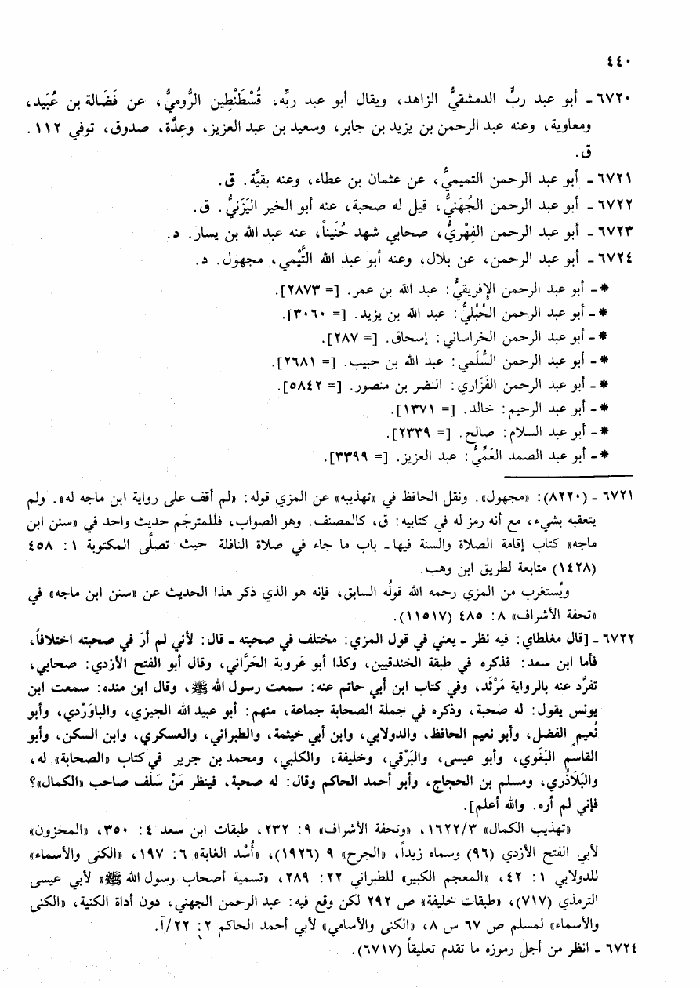 ٤٤٠
٦٧٢٠ ـ أبو عبد ربٍّ الدمشقيُّ الزاهد، ويقال أبو عبد ربِّه، قُسْطَنْطِين الرُّوميُّ، عن فَضَالة بن عُبَيد،
ومعاوية، وعنه عبد الرحمن بن يزيد بن جابر، وسعيد بن عبد العزيز، وعِدَّة، صدوق، توفي ١١٢ .
ق.
٦٧٢١ ـ أبو عبد الرحمن التميميُّ، عن عثمان بن عطاء، وعنه بقيَّة. ق.
٦٧٢٢ ـ أبو عبد الرحمن الجُهَنيُّ، قيل له صحبة، عنه أبو الخير اليَزَنيُّ. ق.
٦٧٢٣ ـ أبو عبد الرحمن الفِهْريُّ، صحابي شهد حُنَيناً، عنه عبد الله بن يسار. د.
٦٧٢٤ ـ أبو عبد الرحمن، عن بلال، وعنه أبو عبد الله التَّيْمي، مجهول. د.
* ـ أبو عبد الرحمن الإفريقيُّ: عبد الله بن عمر. [= ٢٨٧٣].
* ـ أبو عبد الرحمن الحُبُليُّ: عبد الله بن يزيد. [= ٣٠٦٠].
* ـ أبو عبد الرحمن الخراساني: إسحاق. [= ٢٨٧].
* ـ أبو عبد الرحمن السُّلَمي: عبد الله بن حبيب. [= ٢٦٨١].
* ـ أبو عبد الرحمن الفَزَاري: النضر بن منصور. [= ٥٨٤٢].
* ـ أبو عبد الرحيم: خالد. [= ١٣٧١].
* ـ أبو عبد السلام: صالح. [= ٢٣٣٩].
* ـ أبو عبد الصمد العَمِّيُّ: عبد العزيز. [= ٣٣٩٩].
٦٧٢١ ـ (٨٢٢٠): «مجهول». ونقل الحافظ في «تهذيبه» عن المزي قوله: «لم أقف على رواية ابن ماجه له». ولم
يتعقبه بشيء، مع أنه رمز له في كتابيه: ق، كالمصنف. وهو الصواب، فللمترجَم حديث واحد في «سنن ابن
ماجه» كتاب إقامة الصلاة والسنة فيها ـ باب ما جاء في صلاة النافلة حيث تصلَّى المكتوبة ١: ٤٥٨
(١٤٢٨) متابعة لطريق ابن وهب.
ويُستغرب من المزي رحمه الله قولُه السابق، فإنه هو الذي ذكر هذا الحديث عن «سنن ابن ماجه» في
«تحفة الأشراف» ٨: ٤٨٥ (١١٥١٧).
٦٧٢٢ ـ [قال مغلطاي: فيه نظر ـ يعني في قول المزي: مختلف في صحبته ـ قال: لأني لم أرَ في صحبته اختلافاً،
فأما ابن سعد: فذكره في طبقة الخندقيين، وكذا أبو عَروبة الحَرَّاني، وقال أبو الفتح الأزدي: صحابي،
تفرَّد عنه بالرواية مَرْثَد، وفي كتاب ابن أبي حاتم عنه: سمعت رسول الله ﷺ، وقال ابن منده: سمعت ابن
يونس يقول: له صحبة، وذكره في جملة الصحابة جماعة، منهم: أبو عبيد الله الجيزي، والباوَرْدي، وأبو
نُعيم الفضل، وأبو نعيم الحافظ، والدولابي، وابن أبي خيثمة، والطبراني، والعسكري، وابن السكن، وأبو
القاسم البَغَوي، وأبو عيسى، والبَرْقي، وخليفة، والكلبي، ومحمد بن جرير في كتاب «الصحابة» له،
والبَلاذُري، ومسلم بن الحجاج، وأبو أحمد الحاكم وقال: له صحبة، فينظر مَنْ سَلَف صاحب «الكمال»؟
فإني لم أره. والله أعلم].
«تهذيب الكمال» ١٦٢٢/٣، «وتحفة الأشراف» ٩: ٢٣٢، طبقات ابن سعد ٤: ٣٥٠، «المخزون»
لأبي الفتح الأزدي (٩٦) وسماه زيداً، «الجرح» ٩ (١٩٢٦)، «أُسْد الغابة» ٦: ١٩٧، «الكنى والأسماء»
للدولابي ١: ٤٢، «المعجم الكبير» للطبراني ٢٢: ٢٨٩، «تسمية أصحاب رسول الله ﷺ» لأبي عيسى
الترمذي (٧١٧)، «طبقات خليفة» ص ٢٩٢ لكن وقع فيه: عبد الرحمن الجهني، دون أداة الكنية، «الكنى
والأسماء» لمسلم ص ٦٧ س ٨، «الكنى والأسامي» لأبي أحمد الحاكم ٢: ٢٢/آ.
٦٧٢٤ ـ انظر من أجل رموزه ما تقدم تعليقاً (٦٧١٧).